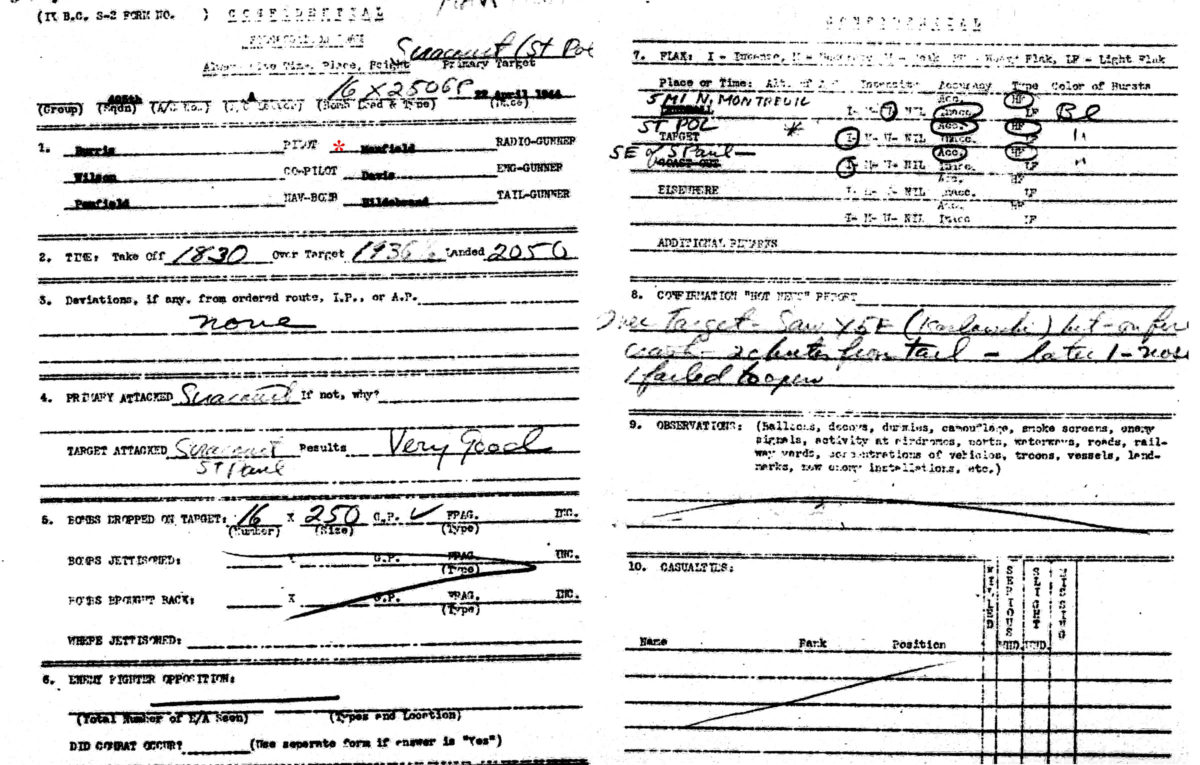 (IX B.C. S-2 FORM NO. ) CONFIDENTIAL
Siracourt (St Pol
Time, Place, Height Primary Target
16 X 250GP
A 22 April 1944
(Group) (Sqdn) (Bomb Load & Type) (Date)
1. PILOT * RADIO-GUNNER
Wilson CO-PILOT Davis ENG-GUNNER
Penfield NAV-BOMB Hildebrand TAIL-GUNNER
2. TIME: Take Off 1830 Over Target 1936½ Landed 2050
3. Deviations, if any, from ordered route, I.P., or A.P.
none
4. PRIMARY ATTACKED Siracourt If not, why?
TARGET ATTACKED Siracourt Results Very Good
ST Paul
5. BOMBS DROPPED ON TARGET: 16 X 250 G.P. ✓ FRAG. INC.
(Number) (Size) (Type)
BOMBS JETTISONED: X G.P. FRAG. INC.
(Type)
BOMBS BROUGHT BACK: X G.P. FRAG. INC.
(Type)
WHERE JETTISONED:
6. ENEMY FIGHTER OPPOSITION:
(Total Number of E/A Seen) (Types and Location)
DID COMBAT OCCUR? (Use separate form if answer is "Yes")
CONFIDENTIAL
7. FLAK: I - Intense, M - Moderate, W - Weak, HF - Heavy Flak, LF - Light Flak
Place or Time: Alt. of A/C Intensity Accuracy Type Color of Bursts
5 MI N. MONTREUIL I- M- W- NIL Acc. HF Bl
Inacc. LF
ST POL
TARGET * I- M- W- NIL Acc. HF "
Inacc. LF
SE of St Paul I- M- W- NIL Acc. HF "
Inacc. LF
ELSEWHERE I- M- W- NIL Acc. HF
Inacc. LF
I- M- W- NIL Acc. HF
Inacc. LF
ADDITIONAL REMARKS
8. CONFIRMATION "HOT NEWS" REPORT
Over Target - Saw Y5E (Kozlowski) hit - on fire
crash - 2 chutes from tail - later 1 - nose
1 failed to open
9. OBSERVATIONS: (Balloons, decoys, dummies, camouflage, smoke screens, enemy
signals, activity at airdromes, ports, waterways, roads, rail-
way yards, concentrations of vehicles, troops, vessels, land-
marks, new enemy installations, etc.)
10. CASUALTIES:
KILLED SERIOUS WND. SLIGHT WND. MISSING
Name Rank Position